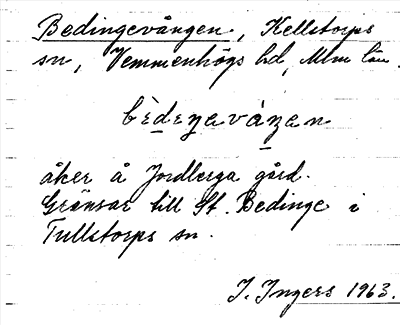 Bedingevången, Kellstorps
sn, Vemmenhögs hd, Mlm län.
bèdeŋavåŋan
åker å Jordberga gård.
Gränsar till St. Bedinge i
Tullstorps sn.
I. Ingers 1963.